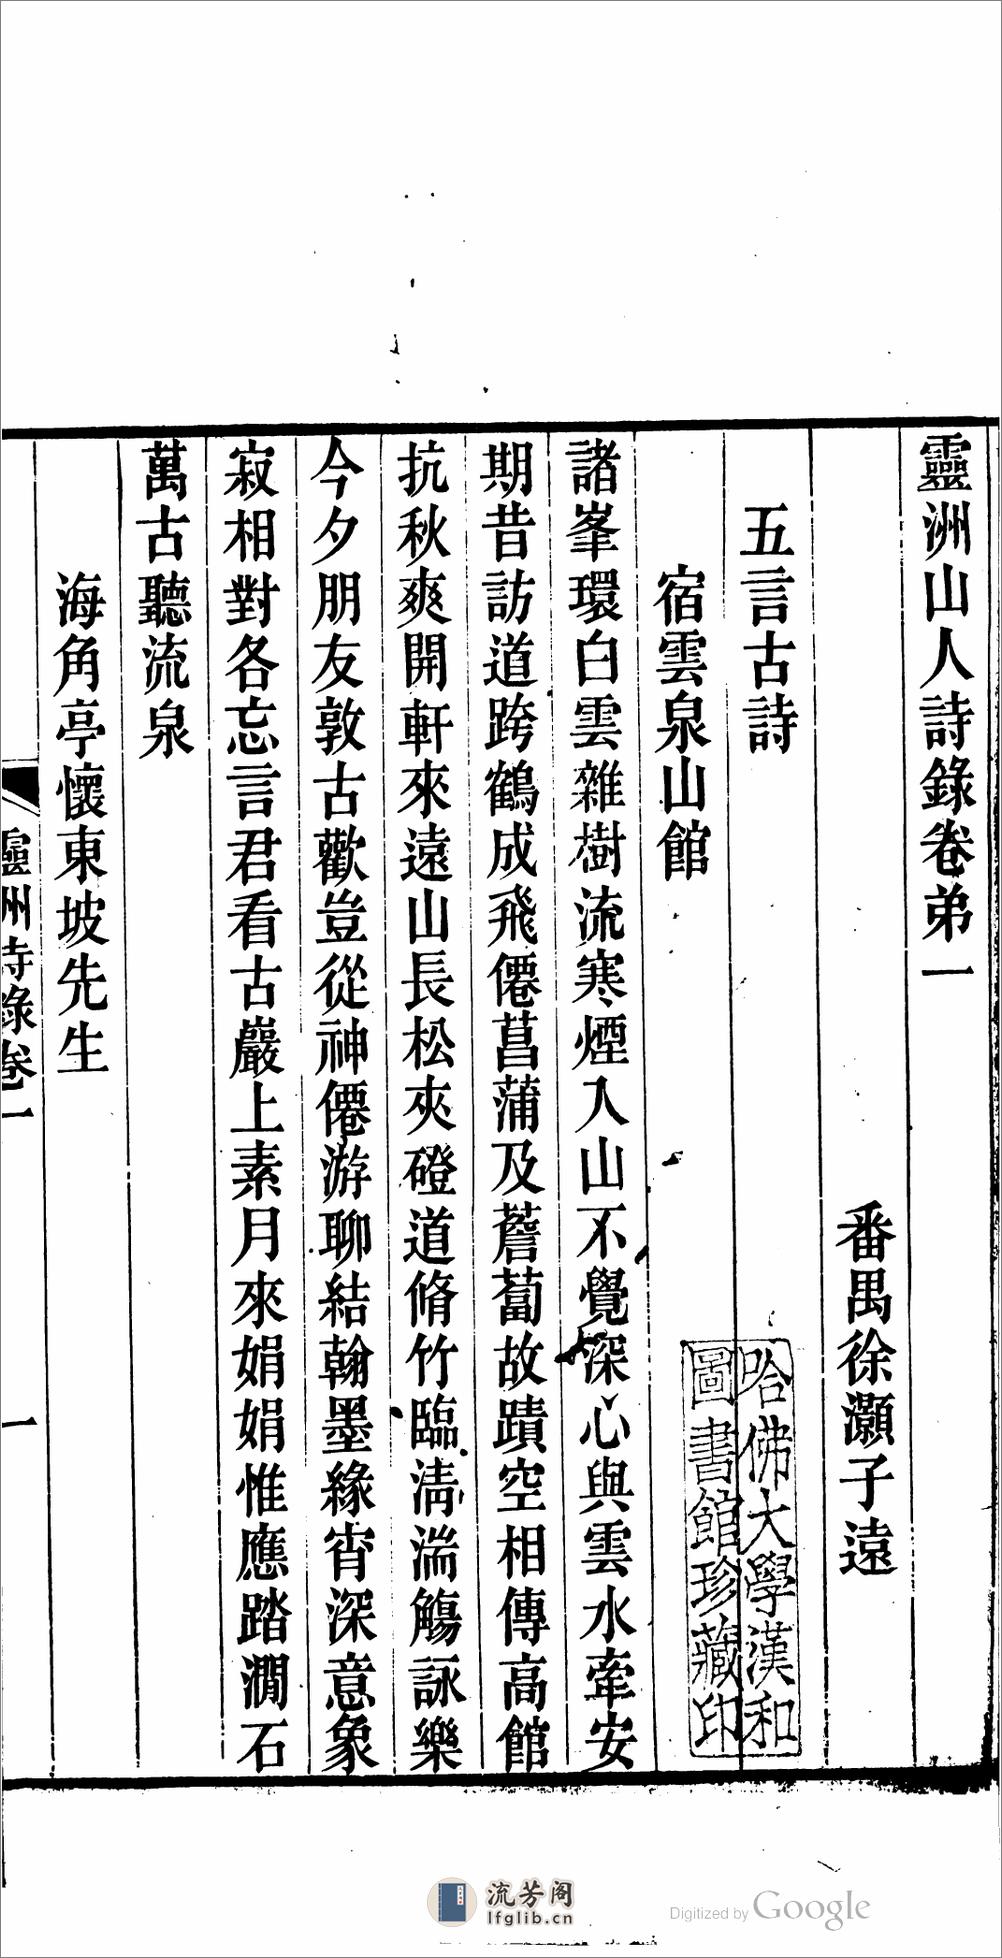 靈洲山人詩錄卷弟一
番禺徐灝子遠
五言古詩
宿雲泉山館
諸峯環白雲雜樹流寒煙入山不覺深心與雲水牽安
期昔訪道跨鶴成飛僊菖蒲及薝蔔故蹟空相傳高館
抗秋爽開軒來遠山長松夾磴道脩竹臨淸湍觴詠樂
今夕朋友敦古歡豈從神僊游聊結翰墨緣宵深意象
寂相對各忘言君看古巖上素月來娟娟惟應踏澗石
萬古聽流泉
海角亭懷東坡先生
靈州詩錄卷一
一
哈佛大學漢和
圖書館珍藏印
流芳阁
lfglib.cn
Digitized by Google